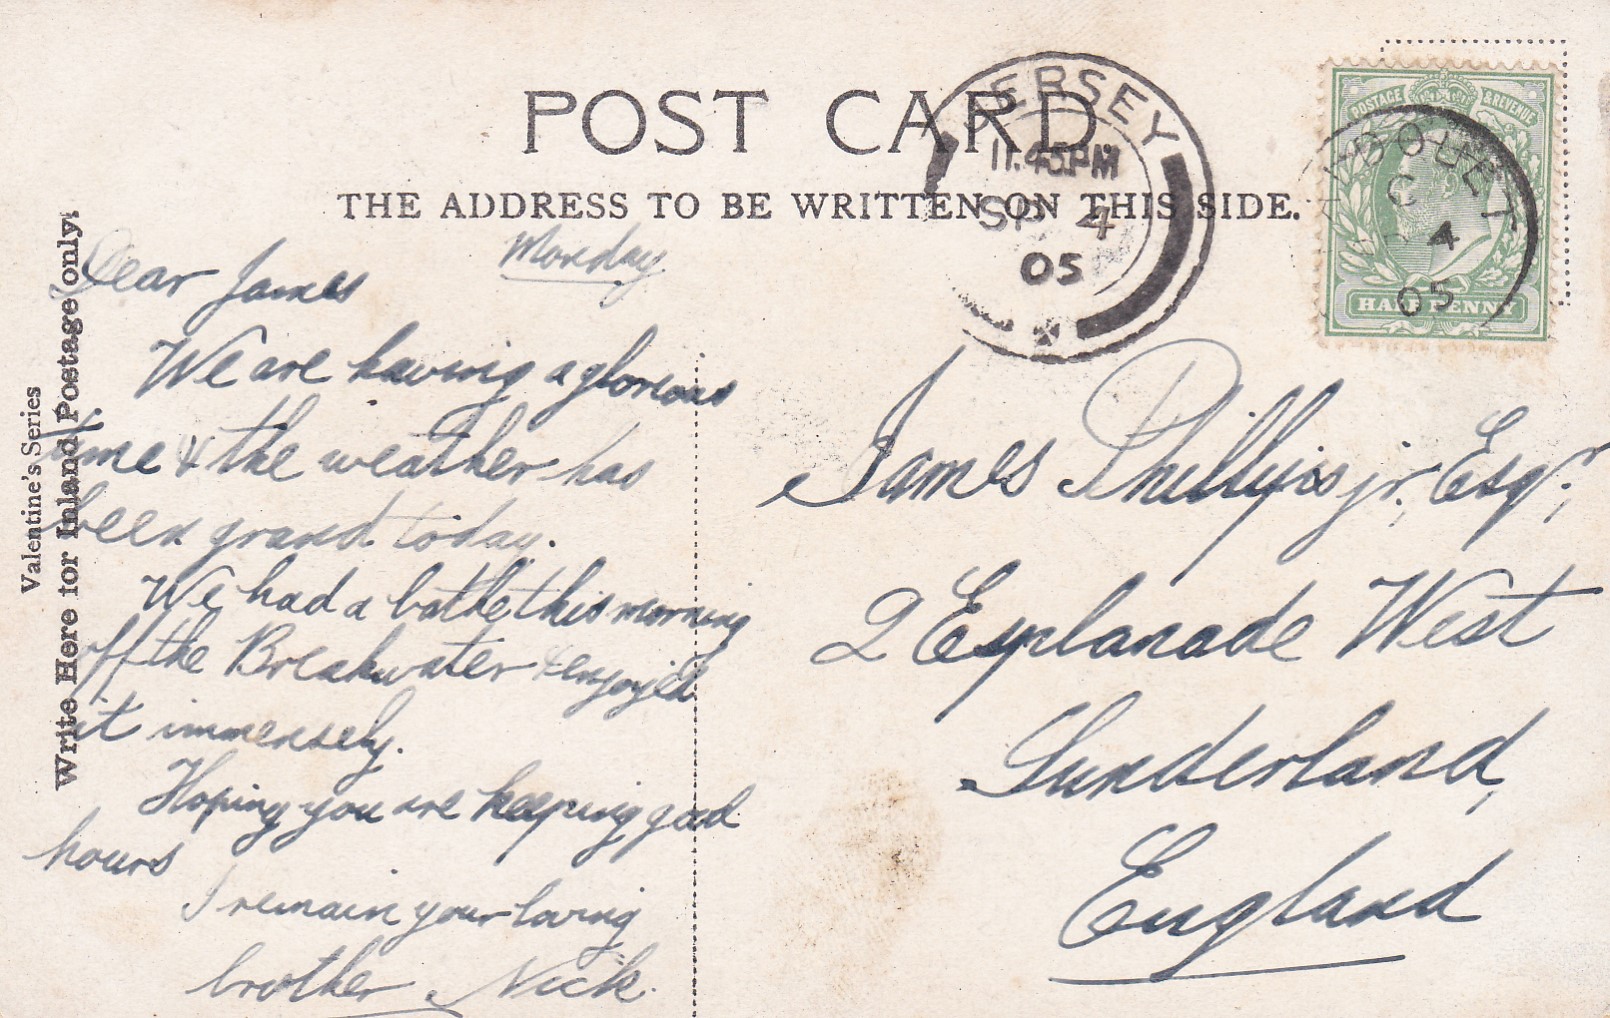 POST CARD
THE ADDRESS TO BE WRITTEN ON THIS SIDE.
Valentine's Series
Write Here for Inland Postage only.
JERSEY
11.45PM
SP 4
05
POSTAGE & REVENUE
HALFPENNY
DOUET
C
4
05
Monday
Dear James
We are having a glorious
time & the weather has
been grand today.
We had a bathe this morning
off the Breakwater & enjoyed
it immensely.
Hoping you are keeping good
hours
I remain your loving
brother Nick.
James Phillips jr., Esqr.,
2 Esplanade West
Sunderland,
England